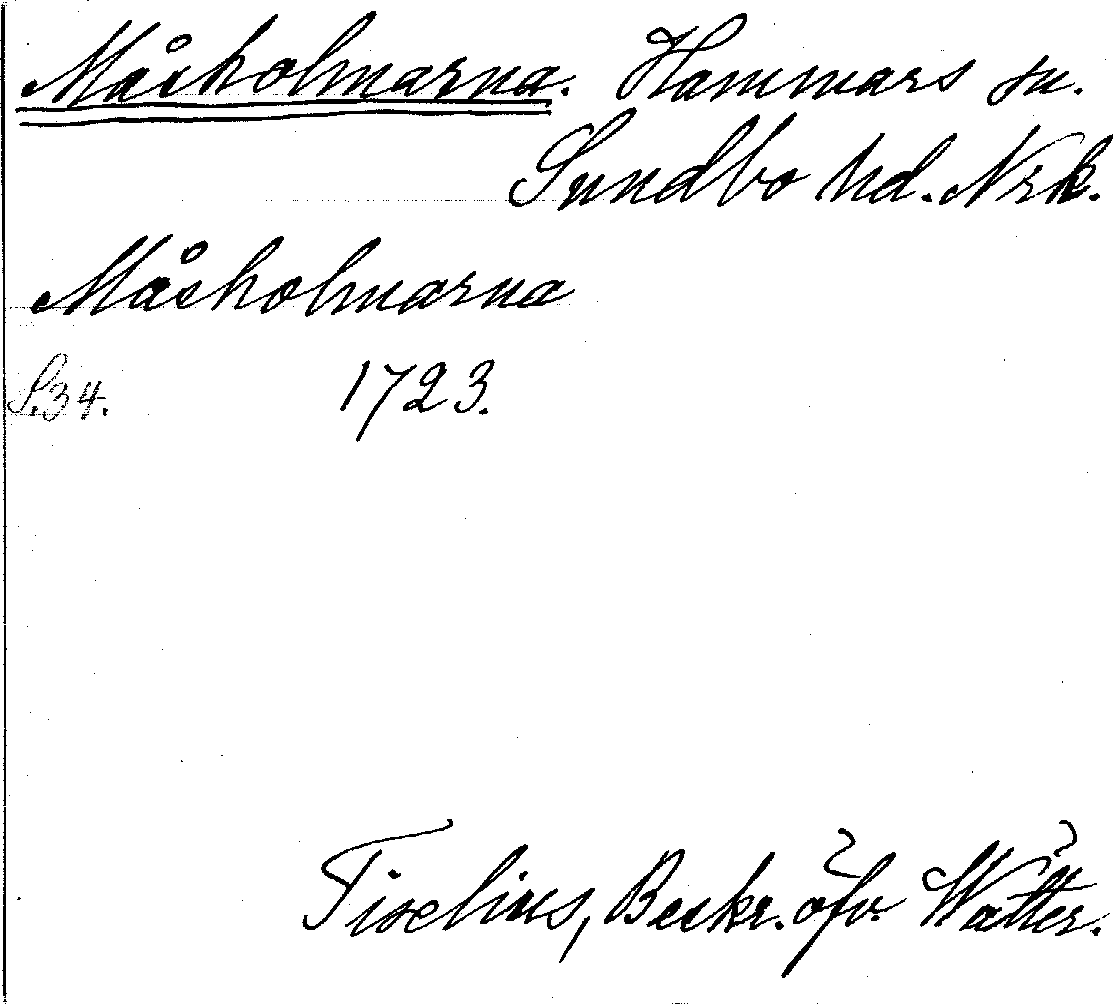 Måsholmarna. Hammars sn.
Sundbo hd. Nrk.
Måsholmarna
S. 34. 1723.
Tiselius, Beskr. öfv. Wätter.